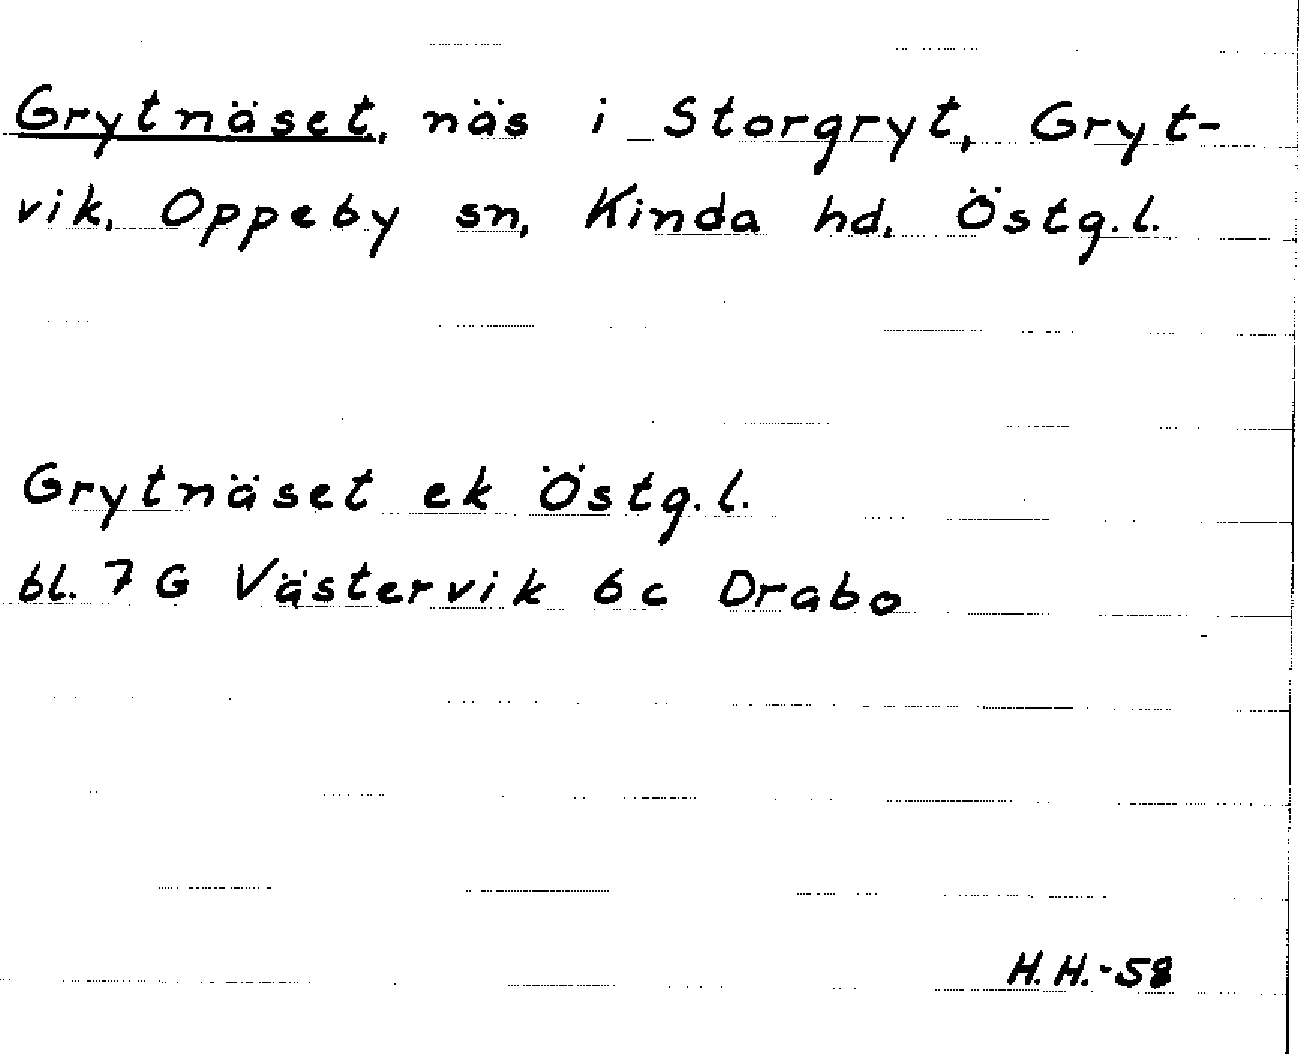 Grytnäset, näs i Storgryt, Gryt-
vik, Oppeby sn, Kinda hd, Östg.l.
Grytnäset ek Östg.l.
bl. 7 G Västervik 6c Drabo
H.H.-58